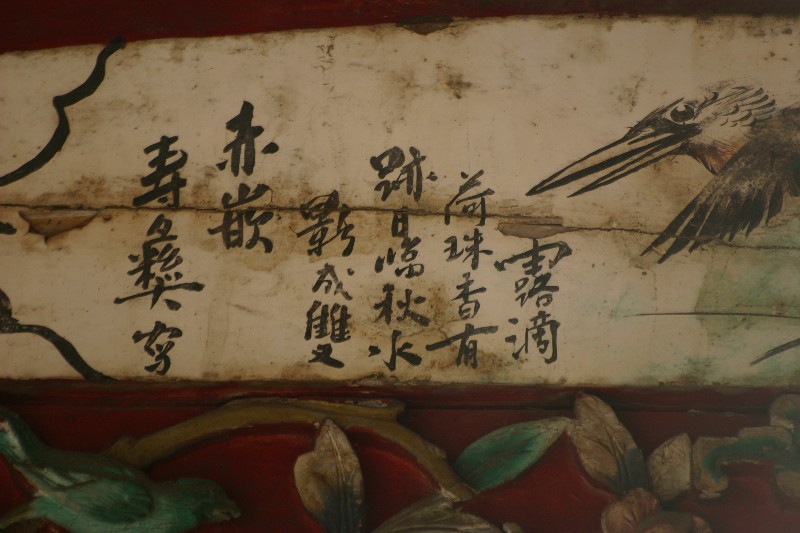 露滴
荷珠香有
跡日臨秋水
影成雙
赤嵌
壽彝寫